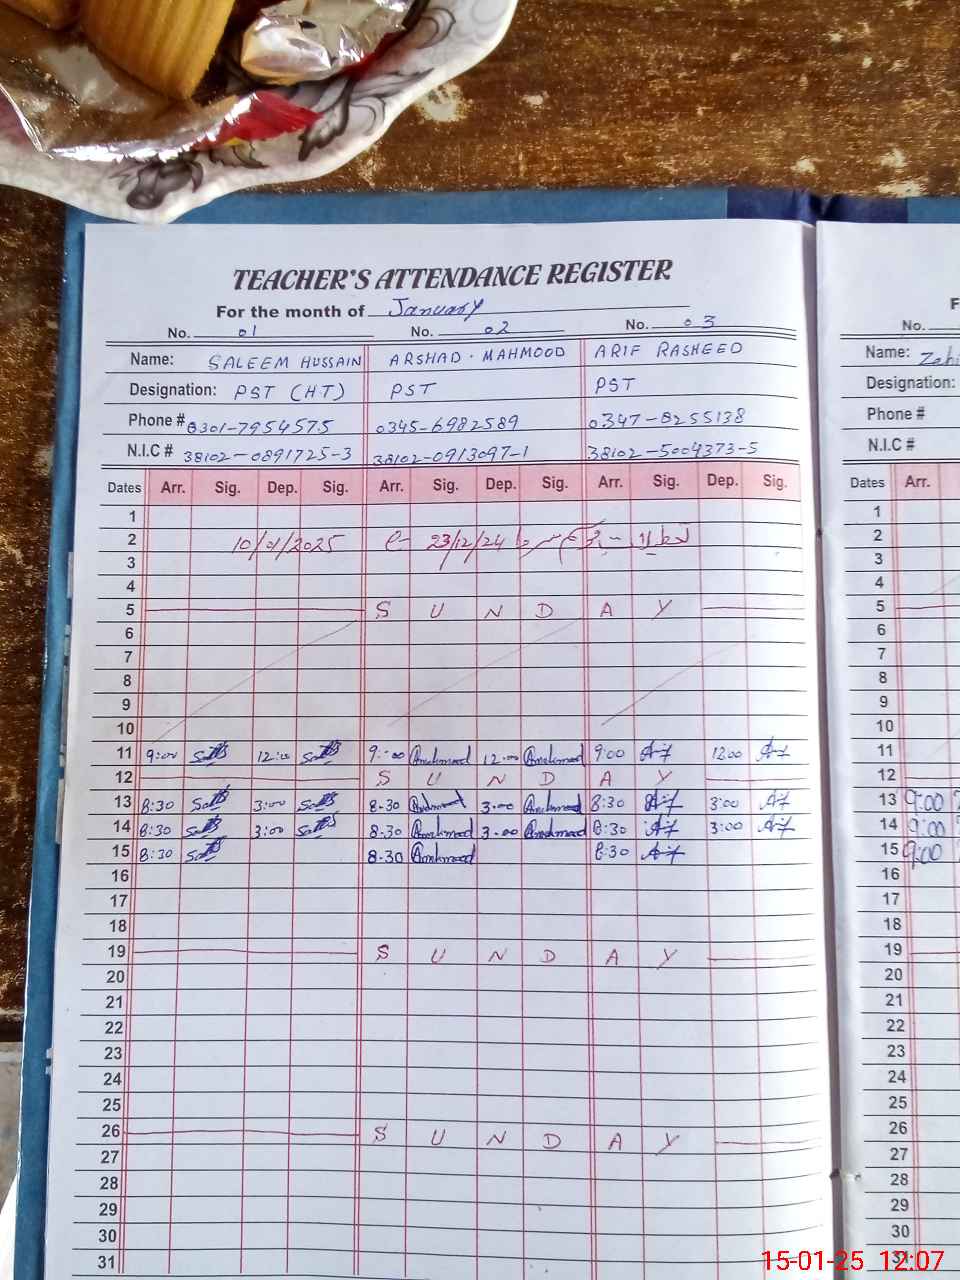 TEACHER'S ATTENDANCE REGISTER
For the month of January
No. 01 No. 02 No. 03
Name: SALEEM HUSSAIN ARSHAD MAHMOOD ARIF RASHEED
Designation: PST (HT) PST PST
Phone # 0301-7954575 0345-6982589 0347-8255138
N.I.C # 38102-0891725-3 38102-0913097-1 38102-5004373-5
Dates Arr. Sig. Dep. Sig. Arr. Sig. Dep. Sig. Arr. Sig. Dep. Sig.
1
2 تعطیلات موسم سرما 23/12/24 سے 10/01/2025
3
4
5 S U N D A Y
6
7
8
9
10
11 9:00 12:00 9:00 12:00 9:00 12:00
12 S U N D A Y
13 8:30 3:00 8-30 3:00 8:30 3:00
14 8:30 3:00 8-30 3:00 8:30 3:00
15 8:30 8-30 8:30
16
17
18
19 S U N D A Y
20
21
22
23
24
25
26 S U N D A Y
27
28
29
30
31
No.
Name:
Designation:
Phone #
N.I.C #
Dates Arr.
1
2
3
4
5
6
7
8
9
10
11
12
13 9:00
14 9:00
15 9:00
16
17
18
19
20
21
22
23
24
25
26
27
28
29
30
15-01-25 12:07